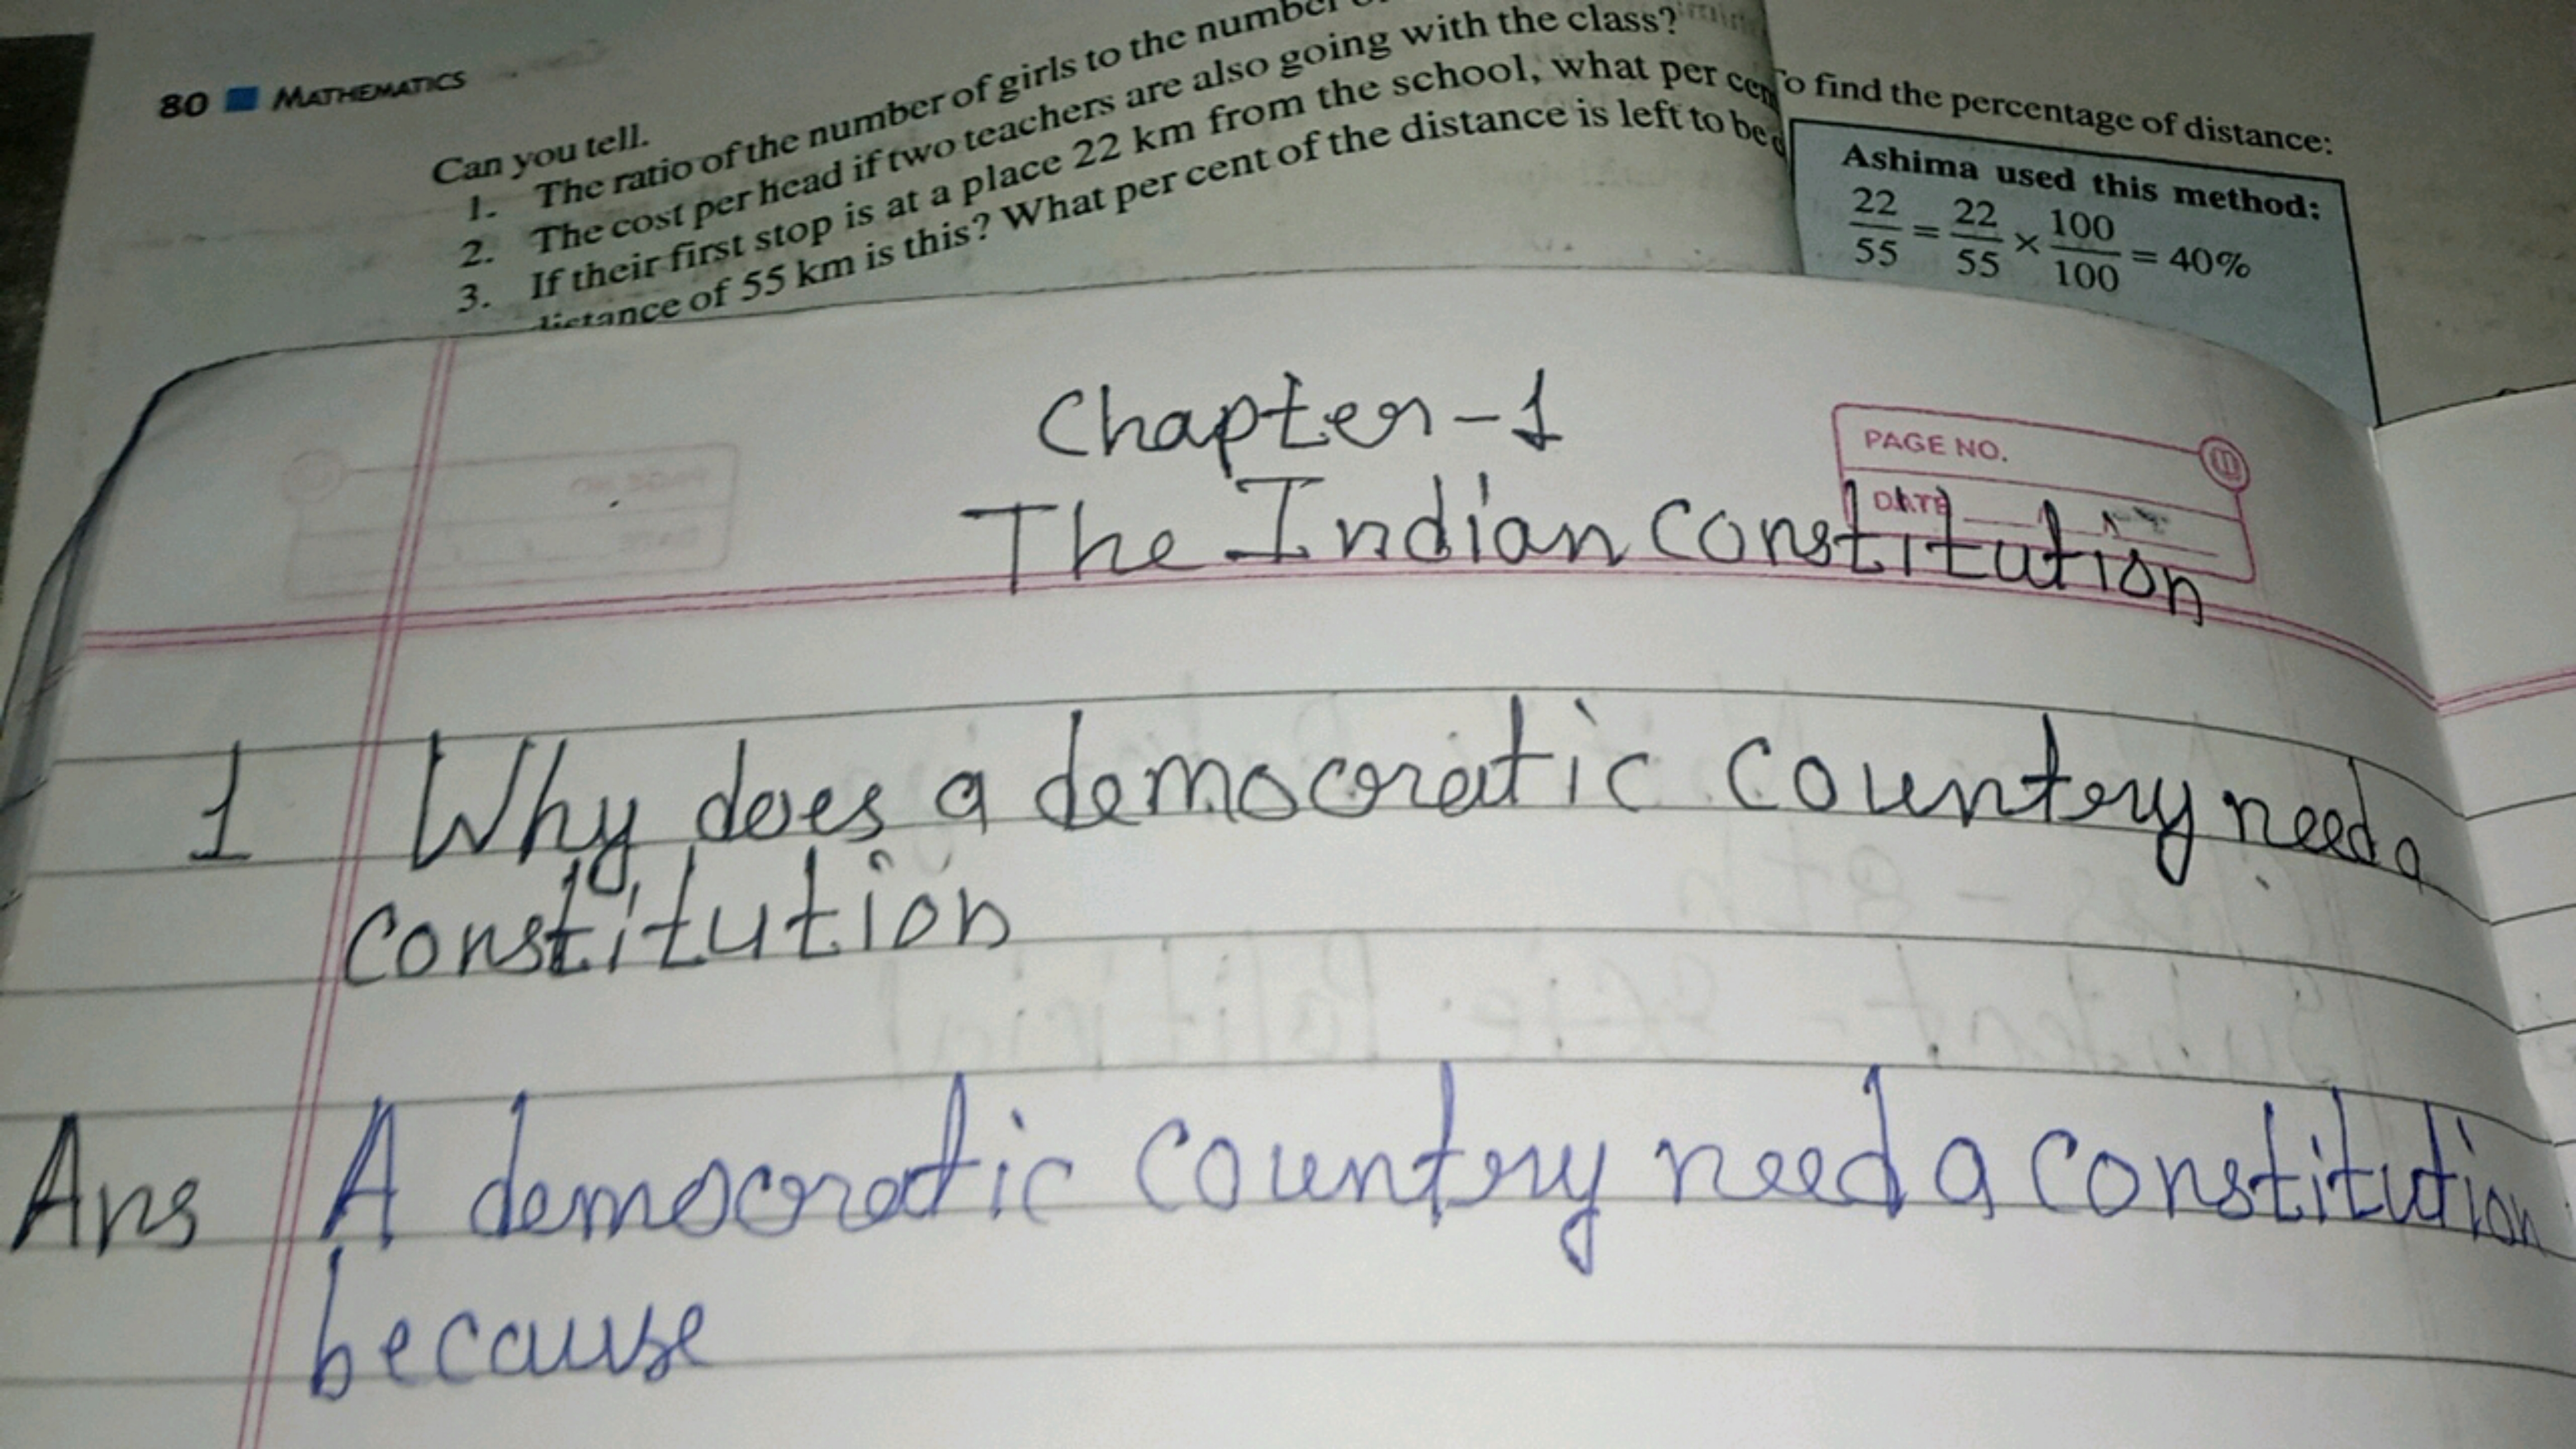 80 MATHEMATICS
Can you tell.
1. The ratio of the number of girls to the number
2. The cost per head if two teachers are also going with the class?
3. If their first stop is at a place 22 km from the school, what per cent
distance of 55 km is this? What per cent of the distance is left to be
To find the percentage of distance:
Ashima used this method:
22/55 = 22/55 × 100/100 = 40%
Chapter-1
PAGE NO.
DATE
The Indian Constitution
1 Why does a democratic country need a
constitution
Ans A democratic country need a constitution
because